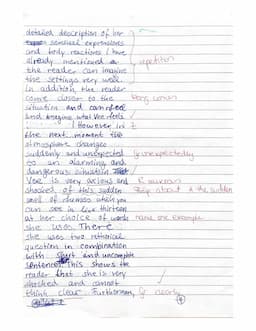 detailed description of her
sensual expressions
and body reactions I have
already mentioned a
repetition
the reader can imagine
the settings very well.
In addition the reader
come closer to the
situation and can feel
and imagine what Vee feels
However, in
the next moment the
atmosphere changes
suddenly and unexpected
ly unexpectedly
to an alarming and
dangerous situation
Vee is very
and
shocked of this sudden
smell of
when you
can see in line thirteen
at her choice of words
name one example
she uses. There
she uses two rethorical
question in combination
with short and uncomplete
sentences. This shows the
reader that she is very
shocked and cannot
think clear. Furthermore,